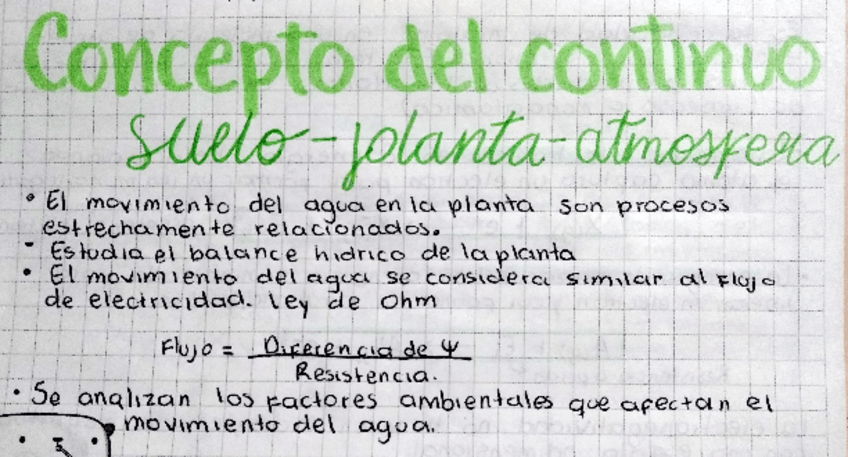 Concepto del continuo
suelo-planta-atmosfera
• El movimiento del agua en la planta son procesos
estrechamente relacionados.
- Estudia el balance hidrico de la planta
• El movimiento del agua se considera similar al Flujo
de electricidad. Ley de Ohm
Flujo = Diferencia de Ψ
Resistencia.
• Se analizan los factores ambientales que afectan el
movimiento del agua.